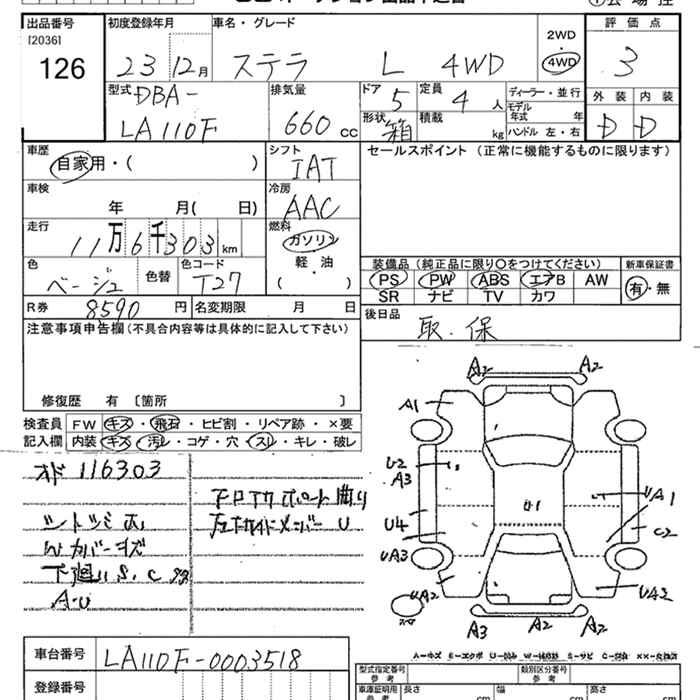 出品番号 初度登録年月 車名・グレード 評価点
[2036] 2WD
126 23 12月 ステラ L 4WD ・ 3
4WD
型式 DBA- 排気量 ドア 5 定員 4 人 ディーラー・並行 外装 内装
LA110F 660 cc 形状 箱 積載 kg モデル年式 年 D D
ハンドル 左・右
車歴 シフト セールスポイント (正常に機能するものに限ります)
自家用・( ) IAT
車検 冷房
年 月( 日) AAC
走行 燃料
11万6千303km ガソリン
色 色替 色コード 軽・油 装備品 (純正品に限り○をつけてください) 新車保証書
ベージュ T27 ( ) PS PW ABS エアB AW 有・無
SR ナビ TV カワ
R券 8590 円 名変期限 月 日 後日品
注意事項申告欄(不具合内容等は具体的に記入して下さい) 取.保
修復歴 有 〔箇所 〕
検査員 FW キズ・飛石・ヒビ割・リペア跡・×要
記入欄 内装 キズ・汚レ・コゲ・穴・スレ・キレ・破レ
オド 116303
下廻りS.C
A2 A2
A1
U2
A3
U1 UA1
U4 C2
UA3
UA2 UA2
A3 A2 A2
車台番号 LA110F-0003518
登録番号
型式指定番号 参考 類別区分番号 参考
車庫証明用 参考 長さ cm 幅 cm 高さ cm